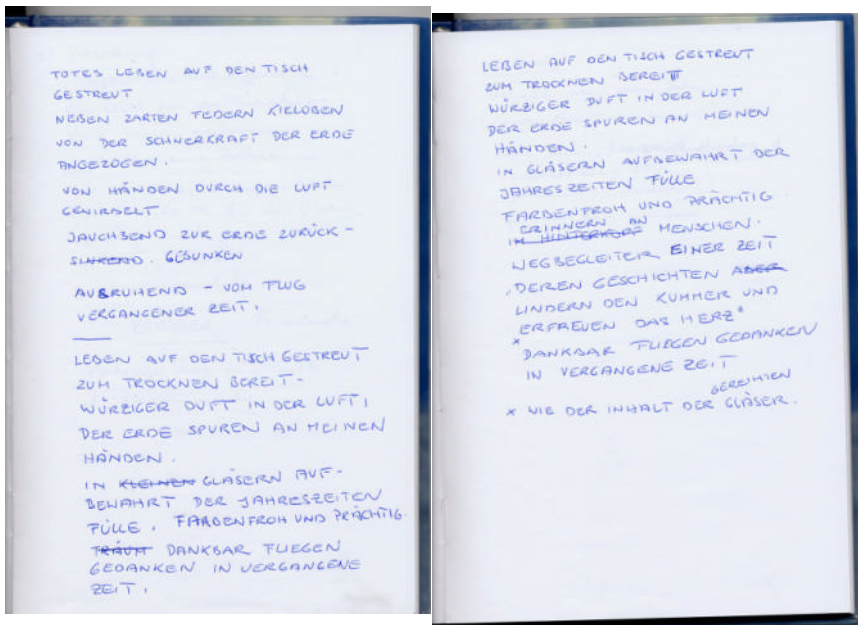 TOTES LEBEN AUF DEN TISCH
GESTREUT
NEBEN ZARTEN FEDERN KIELOBEN
VON DER SCHWERKRAFT DER ERDE
ANGEZOGEN.
VON HÄNDEN DURCH DIE LUFT
GEWIRBELT
JAUCHSEND ZUR ERDE ZURÜCK -
SINKEND. GESUNKEN
AUSRUHEND - VOM FLUG
VERGANGENER ZEIT.
LEBEN AUF DEN TISCH GESTREUT
ZUM TROCKNEN BEREIT -
WÜRZIGER DUFT IN DER LUFT,
DER ERDE SPUREN AN MEINEN
HÄNDEN.
IN KLEINEN GLÄSERN AUF-
BEWAHRT DER JAHRESZEITEN
FÜLLE. FARBENFROH UND PRÄCHTIG
TRÄUM DANKBAR FLIEGEN
GEDANKEN IN VERGANGENE
ZEIT.
LEBEN AUF DEN TISCH GESTREUT
ZUM TROCKNEN BEREIT
WÜRZIGER DUFT IN DER LUFT
DER ERDE SPUREN AN MEINEN
HÄNDEN.
IN GLÄSERN AUFBEWAHRT DER
JAHRESZEITEN FÜLLE
FARBENFROH UND PRÄCHTIG
ERINNERN AN
IM HINTERKOPF MENSCHEN.
WEGBEGLEITER EINER ZEIT
DEREN GESCHICHTEN ABER
LINDERN DEN KUMMER UND
ERFREUEN DAS HERZ*
* DANKBAR FLIEGEN GEDANKEN
IN VERGANGENE ZEIT
GEREIHTEN
* WIE DER INHALT DER GLÄSER.